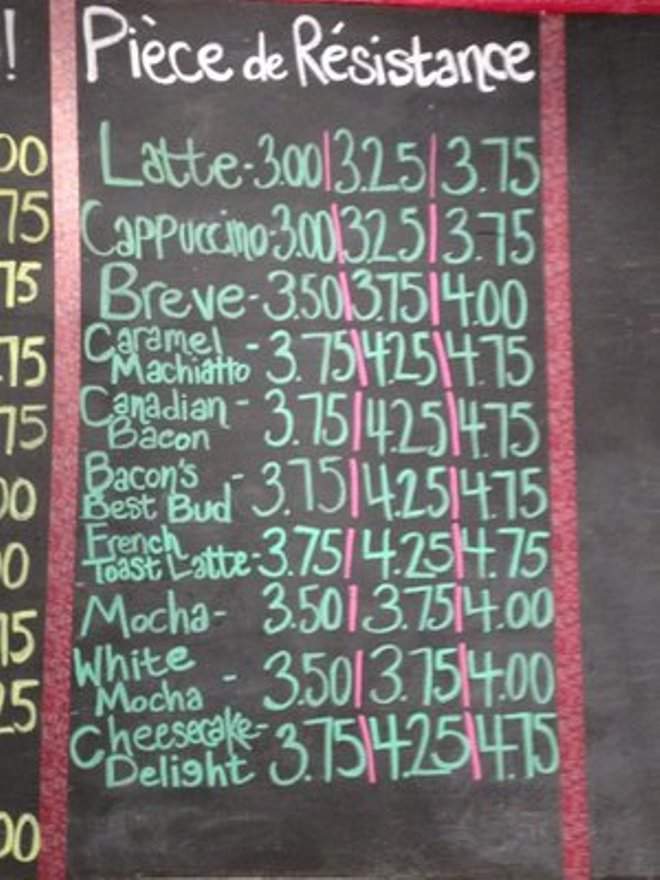 !
Pièce de Résistance
00
Latte-3.00|3.25|3.75
75
Cappuccino-3.00|3.25|3.75
75
Breve-3.50|3.75|4.00
.75
Caramel
Machiatto - 3.75|4.25|4.75
75
Canadian
Bacon - 3.75|4.25|4.75
00
Bacon's
Best Bud - 3.75|4.25|4.75
0
French
Toast Latte-3.75|4.25|4.75
75
Mocha- 3.50|3.75|4.00
25
White
Mocha - 3.50|3.75|4.00
Cheesecake
Delight - 3.75|4.25|4.75
00